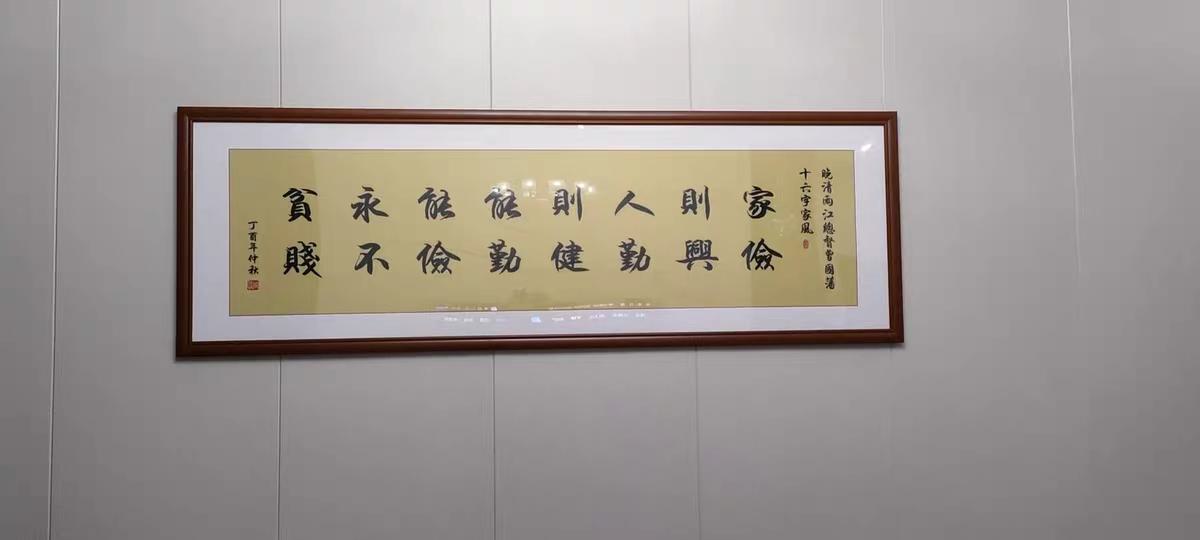 晚清兩江總督曾國藩
十六字家風
家儉
則興
人勤
則健
能勤
能儉
永不
貧賤
丁酉年仲秋